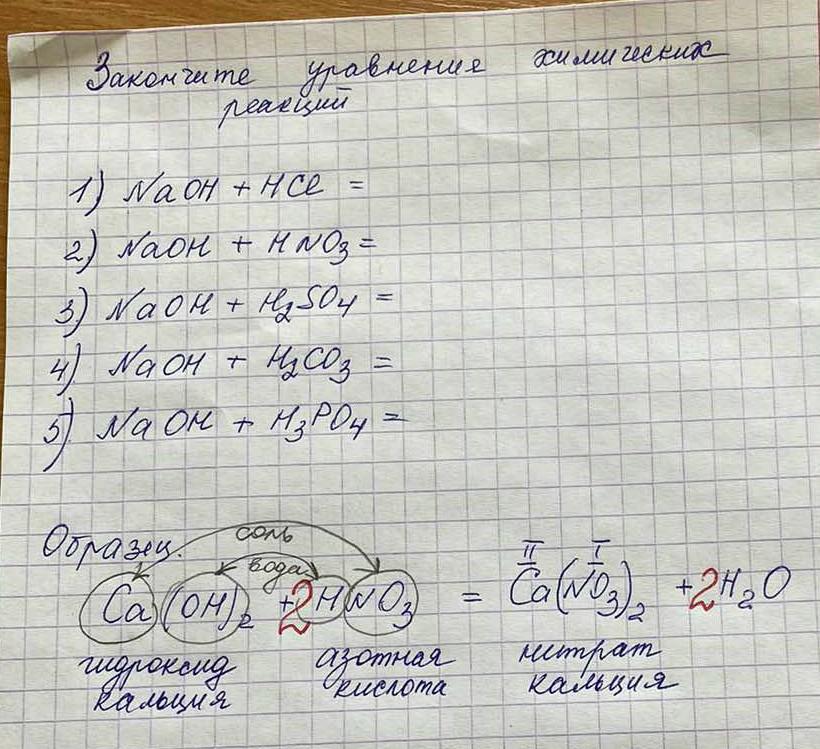 Закончите уравнения химических
реакций
1) NaOH + HCl =
2) NaOH + HNO₃ =
3) NaOH + H₂SO₄ =
4) NaOH + H₂CO₃ =
5) NaOH + H₃PO₄ =
Образец.
соль
вода
II I
Ca(OH)₂ + 2HNO₃ = Ca(NO₃)₂ + 2H₂O
гидроксид азотная нитрат
кальция кислота кальция